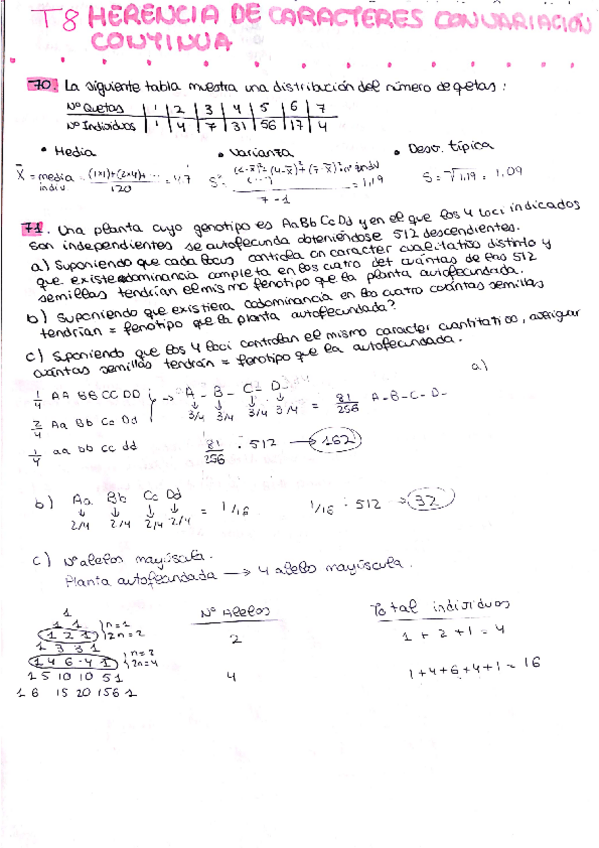 T8 HERENCIA DE CARACTERES CON VARIACIÓN
CONTINUA
70. La siguiente tabla muestra una distribución del número de quetas:
Nº Quetas | 1 | 2 | 3 | 4 | 5 | 6 | 7
Nº Individuos | 1 | 4 | 7 | 31 | 56 | 17 | 4
• Media • Varianza • Desv. típica
X̄ = media = (1x1)+(2x4)+ ... / 120 = 4,7
7 - 1 = 1,19
S = √1,19 = 1,09
71. Una planta cuyo genotipo es AaBbCcDd y en el que los 4 loci indicados
son independientes se autofecunda obteniéndose 512 descendientes.
a) Suponiendo que cada locus controla un caracter cualitativo distinto y
que existe dominancia completa en los cuatro det cuántas de las 512
semillas tendrían el mismo fenotipo que la planta autofecundada.
b) Suponiendo que existiera codominancia en los cuatro cuántas semillas
tendrían = fenotipo que la planta autofecundada?
c) Suponiendo que los 4 loci controlan el mismo caracter cuantitativo, averiguar
cuántas semillas tendrán = fenotipo que la autofecundada.
a)
1/4 AA BB CC DD → A - B - C - D
2/4 Aa Bb Cc Dd 3/4 3/4 3/4 3/4 = 81/256 A-B-C-D-
1/4 aa bb cc dd 81/256 · 512 → 162
b) Aa Bb Cc Dd
2/4 2/4 2/4 2/4 = 1/16 1/16 · 512 → 32
c) Nº alelos mayúscula.
Planta autofecundada → 4 alelo mayúscula.
1 Nº Alelos Total individuos
1 1 n=1
1 2 1 2n=2 2 1 + 2 + 1 = 4
1 3 3 1
1 4 6 4 1 n=2 2n=4 4 1+4+6+4+1 = 16
1 5 10 10 5 1
1 6 15 20 15 6 1